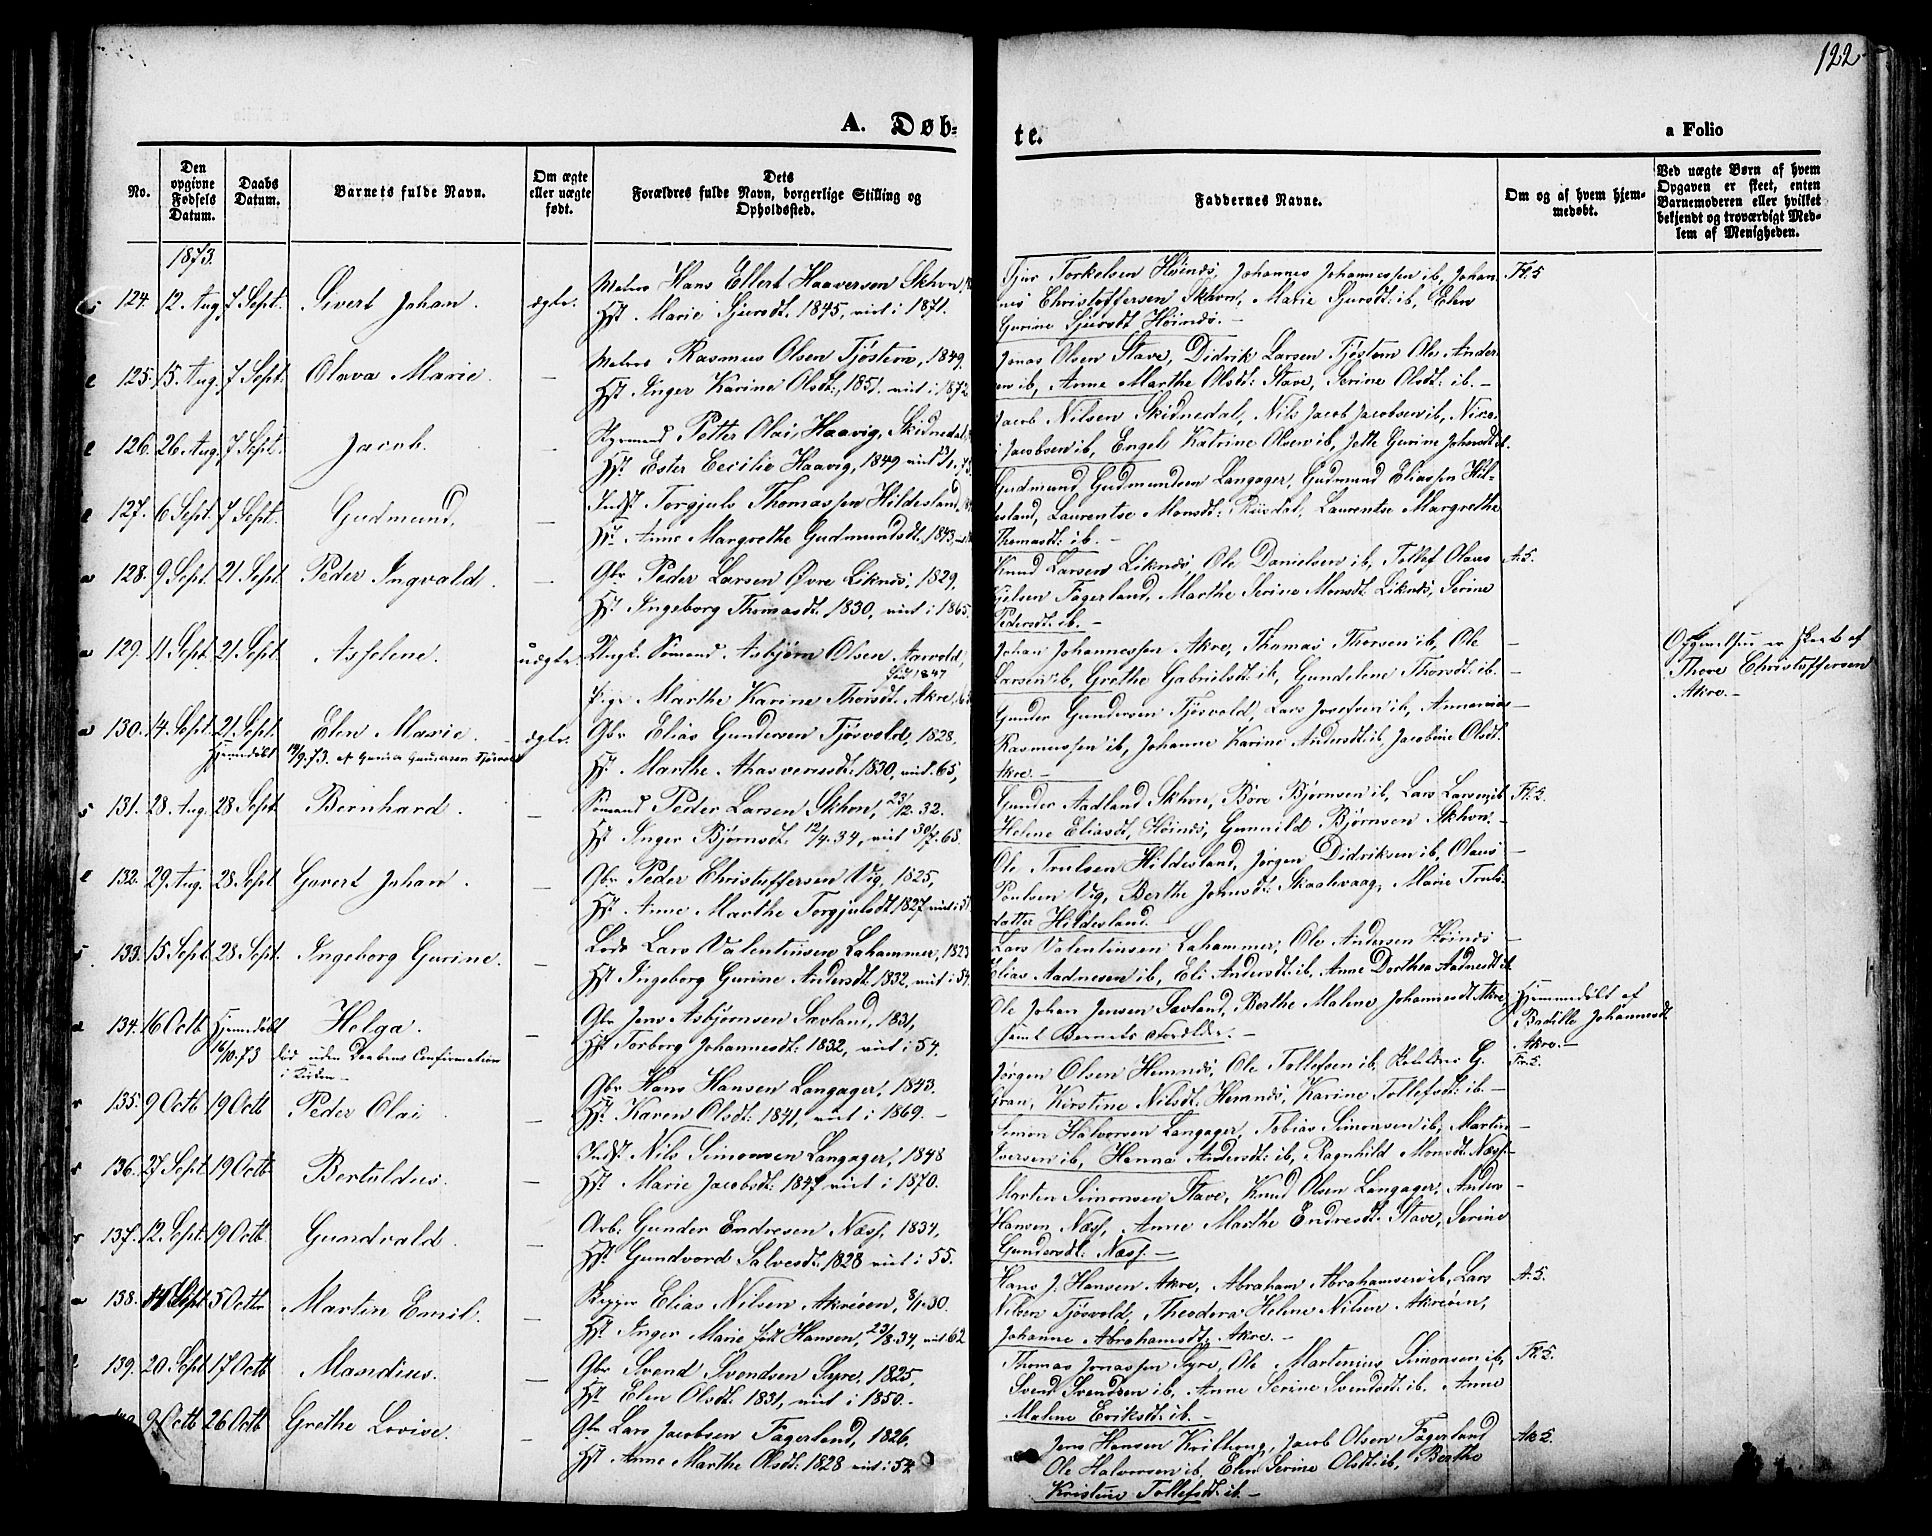 122
A. Døb-
te.
a Folio
No.
Den opgivne Fødsels Datum.
Daabs Datum.
Barnets fulde Navn.
Om ægte eller uægte født.
Dets Forældres fulde Navn, borgerlige Stilling og Opholdssted.
Faddernes Navne.
Om og af hvem hjemmedøbt.
Ved uægte Børn af hvem Opgaven er skeet, enten Barnemoderen eller hvilket bekjendt og troværdigt Medlem af Menigheden.
1873.
124. 12. Aug. 7 Sept. Sivert Johan. ægte. Hans Ellert Haaversen Skhon
Hst. Marie Sjursdt. 1845, viet i 1871.
Sjur Torkelsen Høinæs, Johannes Johannessen ib, Johan-
nes Christoffersen Skhon, Marie Sjursdt. ib, Elen
Gurine Sjursdt Høinæs. —
Fl. 5
125. 15. Aug. 7 Sept. Olava Marie. — Rasmus Olsen Tjøstem, 1849.
Hst. Inger Karine Olsdt., 1851. viet i 1872
Jonas Olsen Stave, Didrik Larsen Tjøstem Ole Ander-
sen ib, Anne Marthe Olsdt. Stave, Serine Olsdt. ib. —
126. 26. Aug. 7 Sept. Jacob. — Styrmand Petter Olai Haavig, Skidnedal
Hst. Ester Cecilie Haavig, 1849
Jacob Nilsen Skidnedal, Nils Jacob Jacobsen ib,
Jacobsen ib, Engel Katrine Olsen ib, Jette Gurine Johnsdt ib
127. 6 Sept. 7 Sept. Gudmund. — Indst. Torgjuls Thomassen Hildesland
Hst. Anne Margrethe Gudmundsdt. 1843,
Gudmund Gudmundsen Langager, Gudmund Eliassen Hil-
desland, Laurentse Monsdt. Risdal, Laurentse Margrethe
Thomasdt. ib. —
128. 9. Sept. 21 Sept. Peder Ingvald. — Gbr. Peder Larsen Øvre Liknæs, 1829,
Hst. Ingeborg Thomasdt. 1830, viet i 1865.
Knud Larsen Liknæs, Ole Danielsen ib, Tollef Olaus
Fagerland, Marthe Serine Monsdt. Liknæs, Serine
Pedersdt. ib. —
A. 5.
129. 11 Sept. 21 Sept. Asselene. uægte. Ungk. Sømand Asbjørn Olsen Aarvold,
fød 1847
Pige Marthe Karine Thorsdt. Akre,
Johan Johannessen Akre, Thomas Thorsen ib, Ole —
Larsen ib, Grethe Gabrielsdt. ib, Gundelene Thorsdt. ib. —
Opgivelsen er skeet af
Thore Christoffersen
Akre. —
130. 14. Sept. 21 Sept. Elen Marie. ægte. Gbr. Elias Gundersen Tjøsvold, 1828,
Hjemmedøbt 14/9. 73. af Gunder Gundersen Tjøsvold
Hst. Marthe Ahasverusdt. 1830, viet. 65,
Gunder Gundersen Tjøsvold, Lars Josefsen ib, Annanias —
Rasmussen ib, Johanne Karine Andersdt. ib, Jacobine Olsdt.
Akre. —
131. 28. Aug. 28. Sept. Bernhard. — Sømand Peder Larsen Skhon, 23/12. 32.
Hst. Inger Bjørnsdt. 12/4. 34, viet 30/7. 68.
Gunder Aadland Skhon, Børe Bjørnsen ib, Lars Larsen ib
Helene Eliasdt, Høinæs, Gunnild Bjørnsen Skhon. —
Fl. 5.
132. 29. Aug. 28 Sept. Govert Johan. — Gbr. Peder Christoffersen Vig, 1825,
Hst. Anne Marthe Torgjulsdt. 1827 viet i 51
Ole Trulsen Hildesland, Jørgen Didriksen ib, Olaus —
Poulsen Vig, Berthe Johnsdt. Skaalevaag, Marie Truls-
datter Hildesland. —
133. 15 Sept. 28 Sept. Ingeborg Gurine. — Lods Lars Valentinsen Lahammer, 1823
Hst Ingeborg Gurine Andersdt. 1832, viet i 54.
Lars Valentinsen Lahammer, Ole Andersen Høinæs —
Elias Aadnesen ib, Eli Andersdt. ib, Anne Dorthea Aadnesdt ib
134. 16 Octb. Hjemmedøbt Helga. — Gbr. Jens Asbjørnsen Sævland, 1831,
16/10. 73 død uden Daabens Confirmation
i Kirken —
Hst Torborg Johannesdt. 1832, viet i 54.
Ole Johan Jensen Sævland, Berthe Malene Johannesdt Akre,
samt Barnets Forældre. —
Hjemmedøbt af
Badille Johannesdt.
Akre. —
135. 9 Octb 19 Octb Peder Olai — Gbr Hans Hansen Langager, 1843.
Hst. Karen Olsdt. 1841, viet i 1869. —
Jørgen Olsen Hemnæs, Ole Tollefsen ib, G.
Gran, Kirstine Nilsdt. Hemnæs, Karine Tollefsdt. ib. —
136. 27 Sept. 19 Octb Bertuldus. — Indst. Nils Simonsen Langager, 1848
Hst. Marie Jacobsdt. 1847 viet i 1870.
Simon Halvorsen Langager, Tobias Simonsen ib, Martin —
Iversen ib, Hanna Andersdt. ib, Ragnhild Monsdt. Næss. —
137. 12. Sept. 19 Octb Gundvald. — Arb. Gunder Endresen Næss, 1834,
Hst. Gundvord Salvesdt. 1828 viet i 55.
Marten Simonsen Stave, Knud Olsen Langager, Anders —
Hansen Næss, Anne Marthe Endresdt. Stave, Serine
Gundersdt. Næss. —
138. 14 Sept 5 Octbr Martin Emil. — Elias Nilsen Akreøen, 8/1. 30.
Hst. Inger Marie født Hansen, 23/8. 34, viet 62
Hans J. Hansen Akre, Abraham Abrahamsen ib, Lars
Nilsen Tjøsvold, Theodora Helene Nilsen Akreøen,
Johanne Abrahamsdt. Akre. —
A. 5.
139. 20. Sept. 17 Octb Mandius. — Gbr Svend Svendsen Syre, 1825,
Hst. Elen Olsdt. 1831, viet i 1850. —
Thomas Jonassen Syre, Ole Martenius Simonsen ib,
Svend Svendsen ib, Anne Serine Svendsdt. ib. Anne
Malene Eriksdt. ib. —
Fl. 5.
9 Octb 26 Octb Grethe Lovise. — Gbr. Lars Jacobsen Fagerland, 1826,
Hst. Anne Marthe Olsdt. 1828 viet i 54
Jens Hansen Kvilhoug, Jacob Olsen Fagerland
Ole Halvorsen ib, Elen Serine Olsdt. ib, Berthe
Kristine Tollefsdt. ib. —